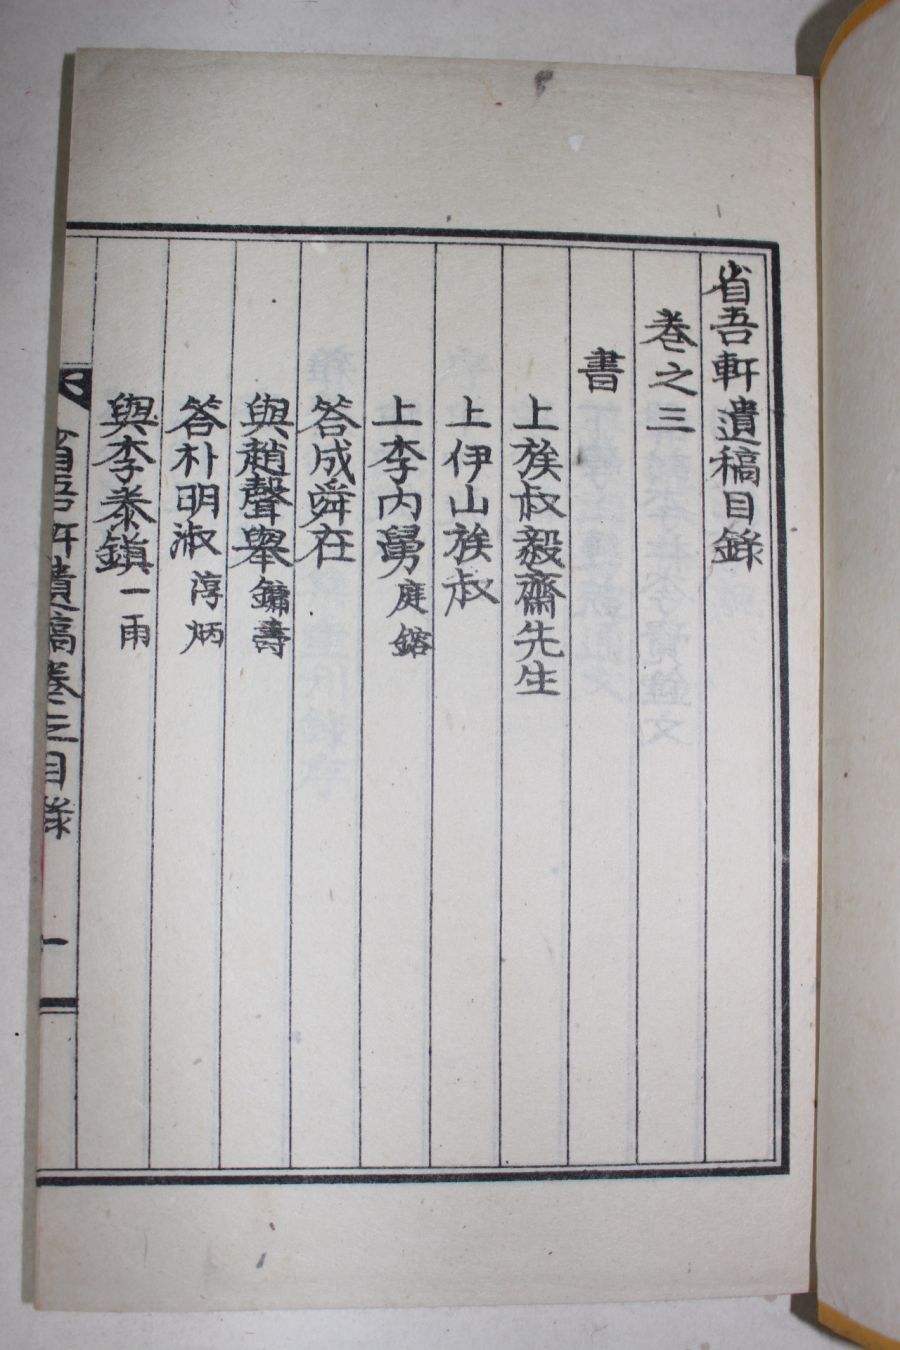 省吾軒遺稿目錄
卷之三
書
上族叔毅齋先生
上伊山族叔
上李內舅庭鎔
答成舜在
與趙聲舉鏞壽
答朴明淑淳炳
與李泰鎭一雨
省吾軒遺稿卷之三目錄 一